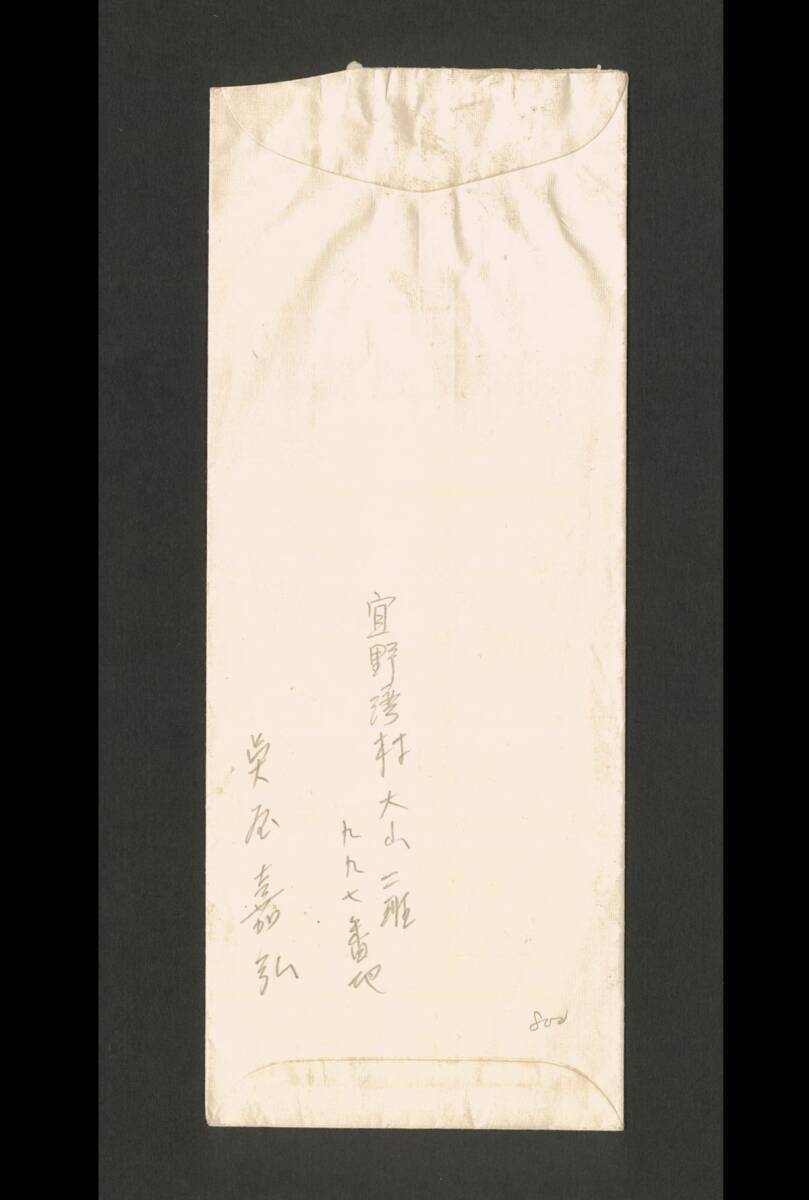 宜野湾村大山二班
九九七番地
呉屋嘉弘